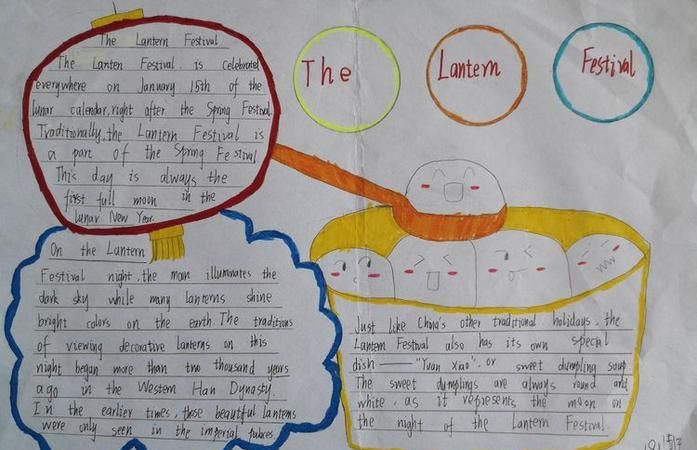 The Lantern Festival
The Lanten Festival is celebrated
everywhere on January 15th of the
lunar calendar, right after the Spring Festival.
Traditionally, the Lantern Festival is
a part of the Spring Festival
This day is always the
first full moon in the
lunar New Year.
The
Lantern
Festival
On the Lantern
Festival night, the moon illuminates the
dark sky while many lanterns shine
bright colors on the earth The traditions
of viewing decorative lanterns on this
night began more than two thousand years
ago in the Western Han Dynasty.
In the earlier times, those beautiful lanterns
were only seen in the imperial
Just like China's other traditional holidays, the
Lantern Festival also has its own special
dish — "Yuan xiao", or sweet dumpling soup
The sweet dumplings are always round and
white, as it represents the moon on
the night of the Lantern Festival.